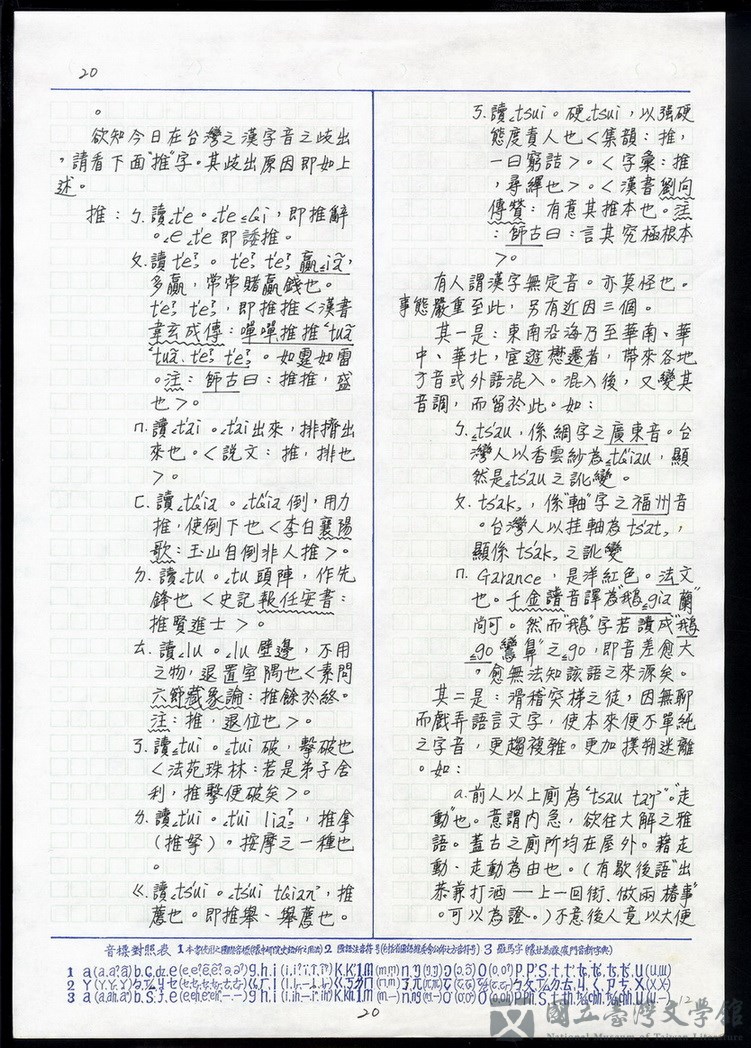 20
。
欲知今日在台灣之漢字音之歧出
，請看下面"推"字。其歧出原因即如上
述。
推：ㄅ.讀꜀t'e。꜀t'e ꜁Gi，即推辭
。꜀e ꜀t'e 即諉推。
ㄆ.讀t'eʔ。t'eʔ t'eʔ 贏꜁iã，
多贏，常常賭贏錢也。
t'eʔ t'eʔ，即推推＜漢書
韋玄成傳：嘽嘽推推 "tuã
tuã. t'eʔ t'eʔ。如霆如雷
。注：師古曰：推推，盛
也＞。
ㄇ.讀꜀t'ai。꜀t'ai出來，排擠出
來也。＜說文：推，排也
＞。
ㄈ.讀꜀tG'ia。꜀tG'ia倒，用力
推，使倒下也＜李白襄陽
歌：玉山自倒非人推＞。
ㄉ.讀꜀tu。꜀tu頭陣，作先
鋒也＜史記報任安書：
推賢進士＞。
ㄊ.讀꜀lu。꜀lu壁邊，不用
之物，退置室隅也＜素問
六節藏象論：推餘於終。
注：推，退位也＞。
ㄋ.讀꜁tui。꜁tui破，擊破也
＜法苑珠林：若是弟子舍
利，推擊便破矣＞。
ㄌ.讀꜀tui。꜀tui liaʔ，推拿
（推拏）。按摩之一種也
。
ㄍ.讀꜀ts'ui。꜀ts'ui tGian，推
薦也。即推舉、舉薦也。
ㄎ.讀꜀tsui。硬꜀tsui，以强硬
態度責人也＜集韻：推，
一曰窮詰＞。＜字彙：推
，尋繹也＞。＜漢書劉向
傳贊：有意其推本也。注
：師古曰：言其究極根本
＞。
有人謂漢字無定音。亦莫怪也。
事態嚴重至此，另有近因三個。
其一是：東南沿海乃至華南、華
中、華北，宦遊懋遷者，帶來各地
方音或外語混入。混入後，又變其
音調，而留於此。如：
ㄅ.꜁ts'au，係綢字之廣東音。台
灣人以香雲紗為꜀tG'iau，顯
然是꜁ts'au之訛變。
ㄆ.ts'ak꜇，係"軸"字之福州音
。台灣人以挂軸為ts'at꜇，
顯係ts'ak꜇之訛變
ㄇ.Garance，是洋紅色。法文
也。千金譜音譯為"鵝꜁gia蘭"
尚可。然而"鵝"字若讀成"鵝
꜁go鸞鼻"之꜁go，即音差愈大
。愈無法知該語之來源矣。
其二是：滑稽突梯之徒，因無聊
而戲弄語言文字，使本來便不單純
之字音，更趨複雜。更加撲朔迷離
。如：
a.前人以上廁為"꜁tsau taŋ"。"走
動"也。意謂內急，欲往大解之雅
語。蓋古之廁所均在屋外。藉走
動、走動為由也。（有歇後語"出
恭兼打酒——上一回街、做兩樁事"
。可以為證。）不意後人竟以大便
音標對照表
20
國立臺灣文學館
National Museum of Taiwan Literature